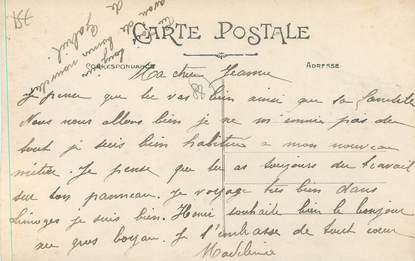 CARTE POSTALE
CORRESPONDANCE
ADRESSE
Ma chère Jeanne
Je pense que tu vas bien ainsi que ta famille
Nous nous allons bien je ne m'ennuie pas du
tout je suis bien habituée a mon nouveau
métier. Je pense que tu as toujours du travail
sur ton panneau. Je voyage très bien dans
Limoges je suis bien. Henri souhaite bien le bonjour
au gros boyau. Je t'embrasse de tout cœur
Madeleine
bonne nouvelle
Gabriel